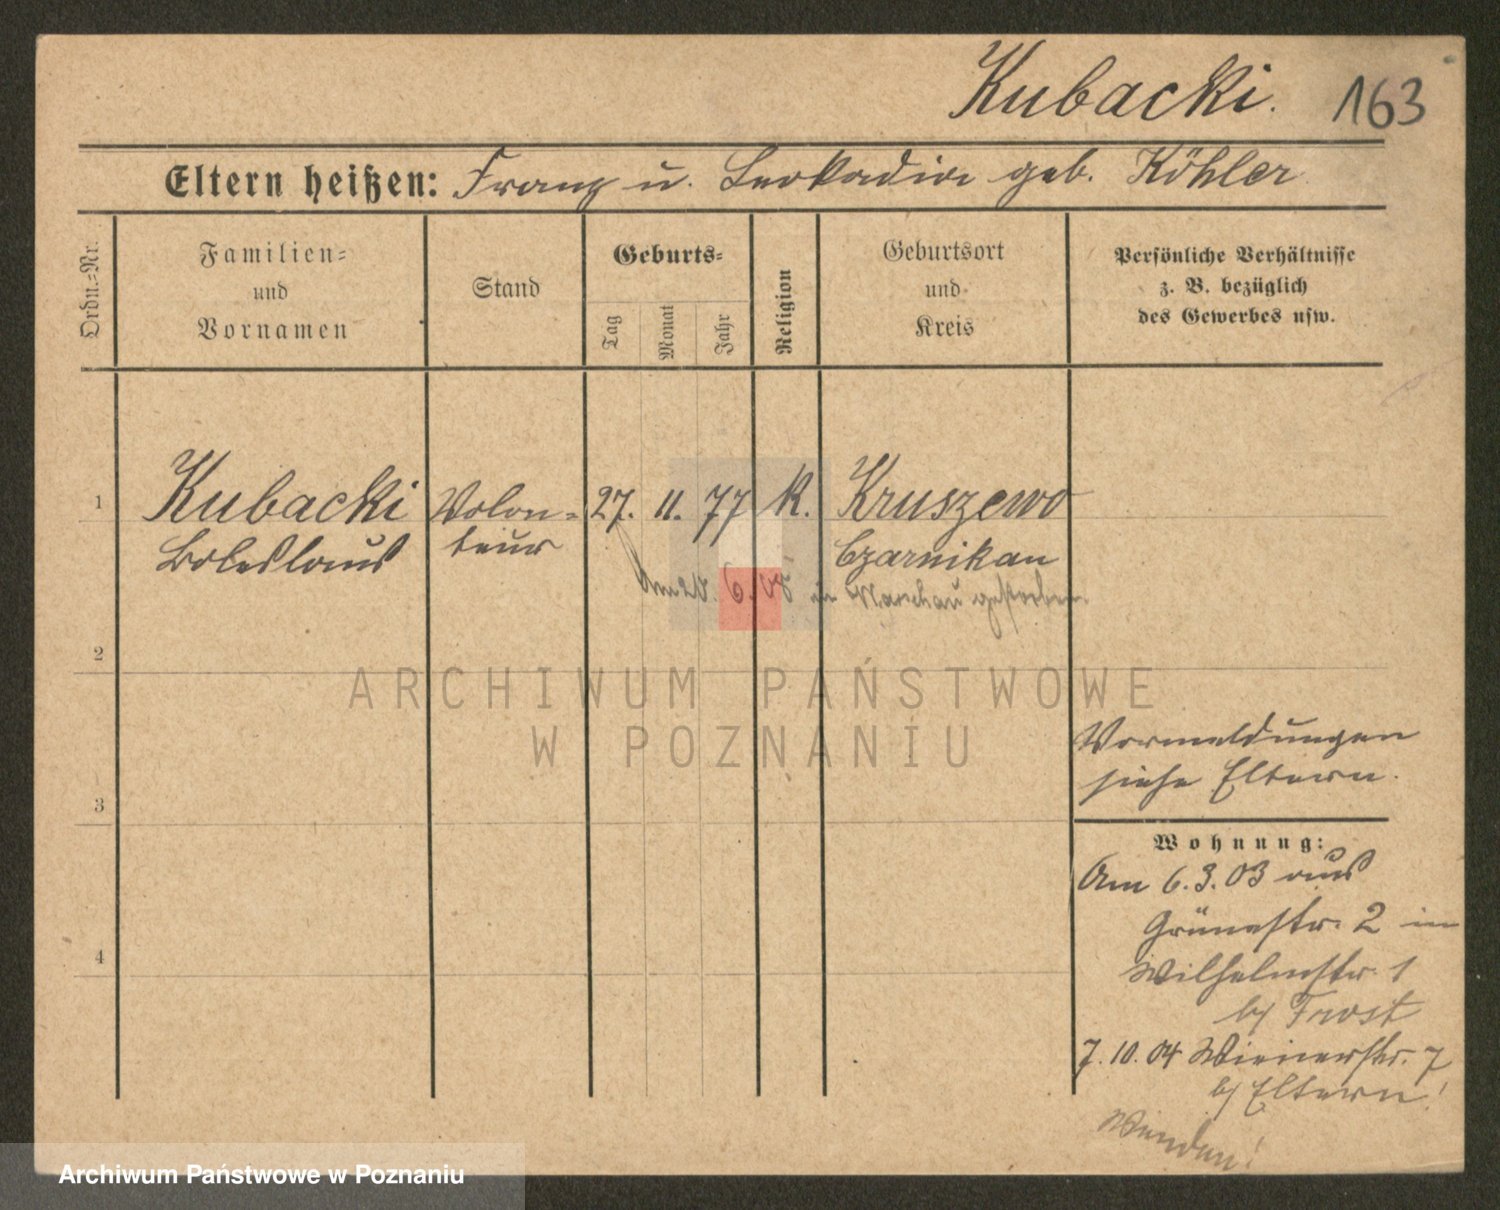 Kubacki. 163
Eltern heißen: Franz u. Leokadia geb. Köhler
Ordn.-Nr.
Familien-
und
Vornamen
Stand
Geburts-
Tag
Monat
Jahr
Religion
Geburtsort
und
Kreis
Persönliche Verhältnisse
z. B. bezüglich
des Gewerbes usw.
1 Kubacki Volon- 27. 11. 77 K. Kruszewo
Boleslaus teur Czarnikau
Am 6. in Warschau gestorben.
2
ARCHIWUM PAŃSTWOWE
W POZNANIU
Vormeldungen
siehe Eltern.
3
Wohnung:
Am 6.3.03 aus
Grünestr. 2 in
Wilhelmstr. 1
4
b/ Frost
7.10.04 Wienerstr. 7
b/ Eltern!
Wenden!
Archiwum Państwowe w Poznaniu